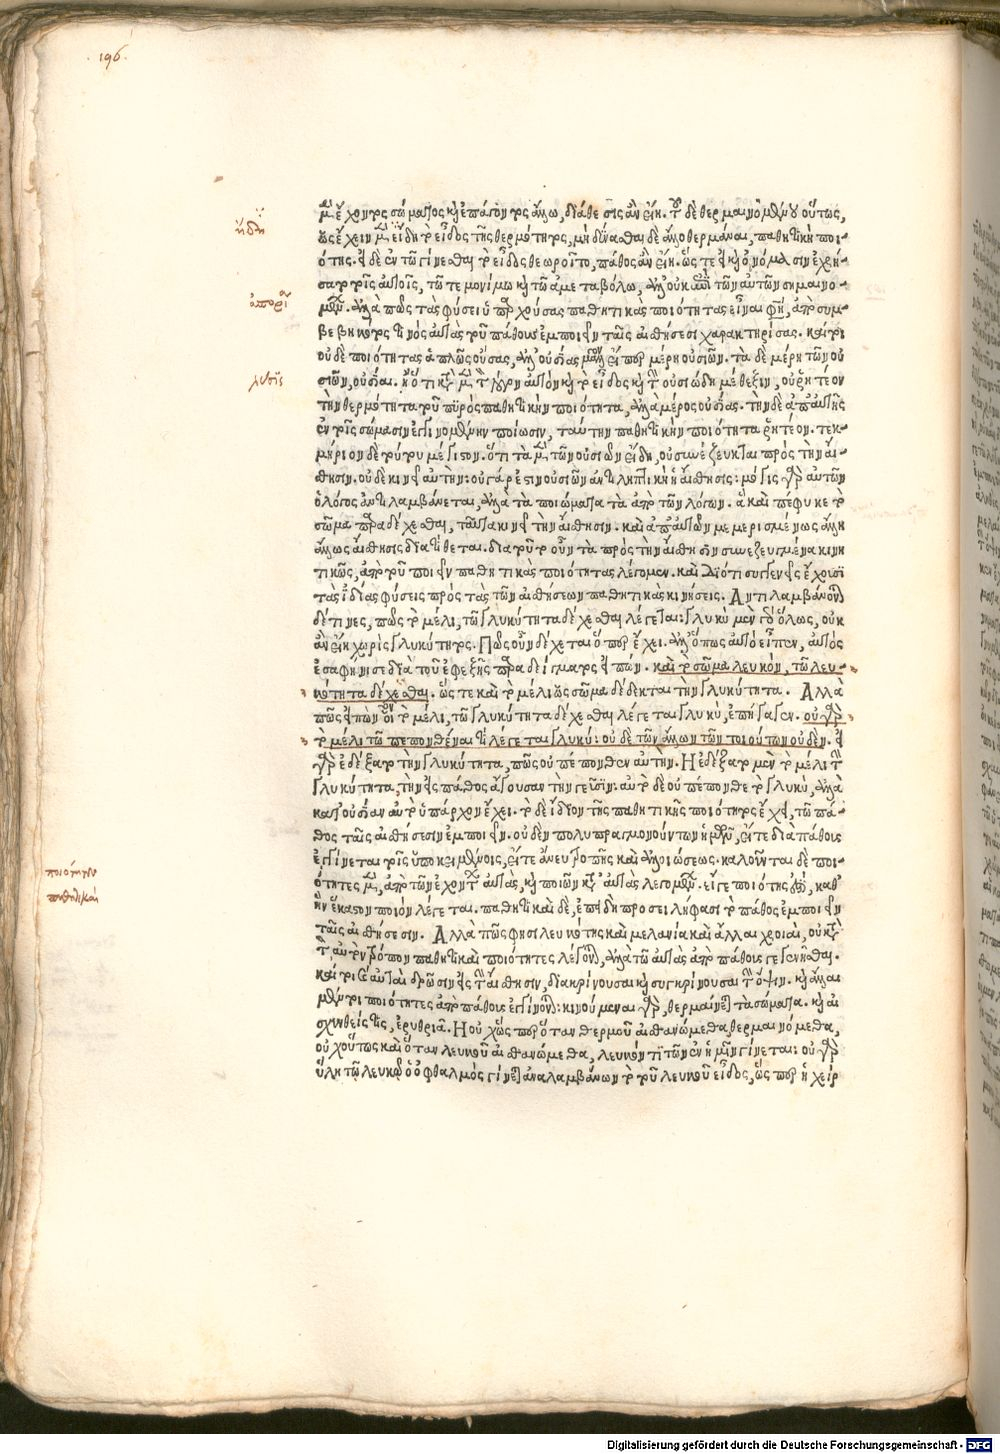 196.
ἤδη
ἀπορί
λύσις
ποιότητες
παθητικαὶ
σώματος καὶ ἐπάγοντος ἄλλω, διάθεσις ἂν εἴη. τοῦ δὲ θερμαινομένου οὕτως,
ὡς ἔχειν μὲν ἤδη τὸ εἶδος τῆς θερμότητος, μὴ δύνασθαι δὲ ἄλλο θερμᾶναι, παθητικὴ ποι-
ότης. εἰ δὲ ἐν τῶ γίνεσθαι τὸ εἶδος θεωροῖτο, πάθος ἂν εἴη. ὥστε
τῶ τε μονίμω καὶ τῶ ἀμεταβόλω, τῶν αὐτῶν σημαινο-
μένων. ἀλλὰ πῶς τὰς φύσει ὑπαρχούσας παθητικὰς ποιότητας εἶναι φησὶν, ἀπὸ συμ-
βεβηκότος τινὸς αὐτὰς τοῦ πάθους ἐμποιεῖν ταῖς αἰσθήσεσι χαρακτηρίσας. καίτοι
οὐδὲ ποιότητας ἁπλῶς οὔσας, ἀλλ' οὐσίας μᾶλλον εἴπερ μέρη οὐσιῶν. τὰ δὲ μέρη τῶν οὐ
σιῶν, οὐσίαι. οὐσιώδη μέθεξιν, οὐ ῥητέον
τὴν θερμότητα τοῦ πυρὸς παθητικὴν ποιότητα, ἀλλὰ μέρος οὐσίας. τὴν δὲ ἀπ' αὐτῆς
ἐν τοῖς σώμασιν ἐγγινομένην ποίωσιν, ταύτην παθητικὴν ποιότητα ῥητέον. τεκ-
μήριον δὲ τούτου μέγιστον. ὅτι τὰ μὲν τῶν οὐσιῶν εἴδη, οὐ συνέζευκται πρὸς τὴν αἴ-
σθησιν. οὐδὲ κινεῖ αὐτήν: οὐ γάρ ἐστιν οὐσιῶν ἀντιληπτικὴ ἡ αἴσθησις: μόγις γὰρ αὐτῶν
ὁ λόγος ἀντιλαμβάνεται, ἀλλὰ τὰ ποιώματα τὰ ἀπὸ τῶν λόγων. ἃ καὶ πέφυκε τὸ
σῶμα παραδέχεσθαι, ταῦτα κινεῖ τὴν αἴσθησιν. καὶ ἀπ' αὐτῶν μεμερισμένως ἄλλη
ἄλλως αἴσθησις διατίθεται. διὰ τοῦτο οὖν τὰ πρὸς τὴν αἴσθησιν συνεζευγμένα κινη
τικῶς, ἀπὸ τοῦ ποιεῖν παθητικὰς ποιότητας λέγομεν. καὶ διότι συγγενεῖς ἔχουσι
τὰς ἰδίας φύσεις πρὸς τὰς τῶν αἰσθήσεων παθητικὰς κινήσεις. Ἀντιλαμβάνονται
δέ τινες, πῶς τὸ μέλι, τῶ γλυκύτητα δέχεσθαι λέγεται: γλυκὺ μὲν γὰρ ὅλως, οὐκ
ἂν εἴη χωρὶς γλυκύτητος. Πῶς οὖν δέχεται ὅπερ ἔχει. ἀλλ' ὅπως αὐτὸ εἶπεν, αὐτὸς
ἐσαφήνισε διὰ τοῦ ἐφεξῆς παραδείγματος εἰπών. καὶ τὸ σῶμα λευκόν, τῶ λευ-
κότητα δέχεσθαι. ὥστε καὶ τὸ μέλι ὡς σῶμα δέδεκται τὴν γλυκύτητα. Ἀλλὰ
πῶς εἰπὼν ὅτι τὸ μέλι, τῶ γλυκύτητα δέχεσθαι λέγεται γλυκύ, ἐπήγαγεν. οὐ γὰρ
τὸ μέλι τῶ πεπονθέναι τι λέγεται γλυκύ: οὐδὲ τῶν ἄλλων τῶν τοιούτων οὐδέν. εἰ
γὰρ ἐδέξατο τὴν γλυκύτητα, πῶς οὐ πέπονθεν αὐτήν. Ἢ ἐδέξατο μὲν τὸ μέλι τὴν
γλυκύτητα, τὴν εἰς πάθος ἄγουσαν τὴν γεῦσιν: αὐτὸ δὲ οὐ πέπονθε τὸ γλυκύ, ἀλλὰ
κατ' οὐσίαν αὐτὸ ὑπάρχον ἔχει. τὸ δὲ ἴδιον τῆς παθητικῆς ποιότητος ἔχει, τῶ πά-
θος ταῖς αἰσθήσεσιν ἐμποιεῖν. οὐδὲν πολυπραγμονούντων ἡμῶν, εἴτε διὰ πάθους
ἐγγίνεται τοῖς ὑποκειμένοις, εἴτε ἄνευ τροπῆς καὶ ἀλλοιώσεως. καλοῦνται δὲ ποι-
ότητες μὲν, ἀπὸ τῶν ἐχόντων αὐτὰς, καὶ ποιῶν κατ' αὐτὰς λεγομένων. εἴγε ποιότης ἐστὶ, καθ'
ἣν ἕκαστον ποιὸν λέγεται. παθητικαὶ δὲ, ἐπειδὴ προσειλήφασι τὸ πάθος ἐμποιεῖν
ταῖς αἰσθήσεσιν. Ἀλλὰ πῶς φησι λευκότης καὶ μελανία καὶ ἄλλαι χροιαὶ, οὐ κατὰ
τὸν αὐτὸν τρόπον παθητικαὶ ποιότητες λέγονται, ἀλλὰ τῶ αὐτὰς ἀπὸ πάθους γεγενῆσθαι.
καίτοι καὶ αὗται δρῶσιν εἰς τὴν αἴσθησιν, διακρίνουσαι καὶ συγκρίνουσαι τὴν ὄψιν. καὶ ἄλλαι
μέντοι ποιότητες ἀπὸ πάθους ἐγγίνονται: κινούμεναι γὰρ, θερμαίνεται τὰ σώματα. καὶ αἰ
σχυνθείς τις, ἐρυθριᾷ. Ἢ οὐχ ὥσπερ ὅταν θερμοῦ αἰσθανώμεθα, θερμαινόμεθα,
οὐχ οὕτως καὶ ὅταν λευκοῦ αἰσθανώμεθα, λευκόν τι τῶν ἐν ἡμῖν γίνεται: οὐ γὰρ
ὕλη τῶ λευκῶ ὁ ὀφθαλμὸς γίνεται ἀναλαμβάνων τὸ τοῦ λευκοῦ εἶδος, ὥσπερ ἡ χεὶρ
Digitalisierung gefördert durch die Deutsche Forschungsgemeinschaft - DFG